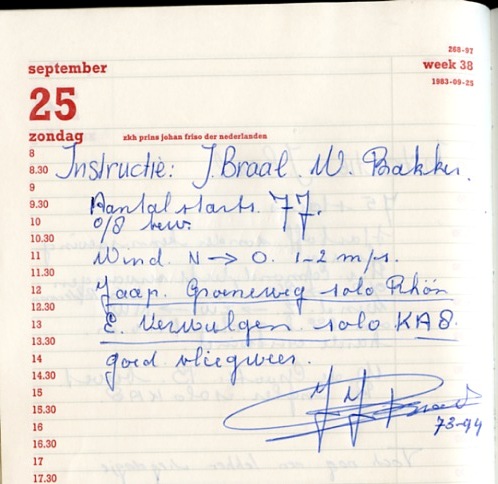 268-97
september
week 38
1983-09-25
25
zondag
zkh prins johan friso der nederlanden
8
8.30
Instructie: J. Braal. W. Bakker.
9
9.30
Aantal starts. 77.
10
0/8 bew.
10.30
11
Wind. N → O. 1-2 m/s.
11.30
12
Jaap. Groeneweg solo Rhön
12.30
13
E. Verwulgen solo KA8.
13.30
14
goed vliegweer.
14.30
15
15.30
16
73-94
16.30
17
17.30